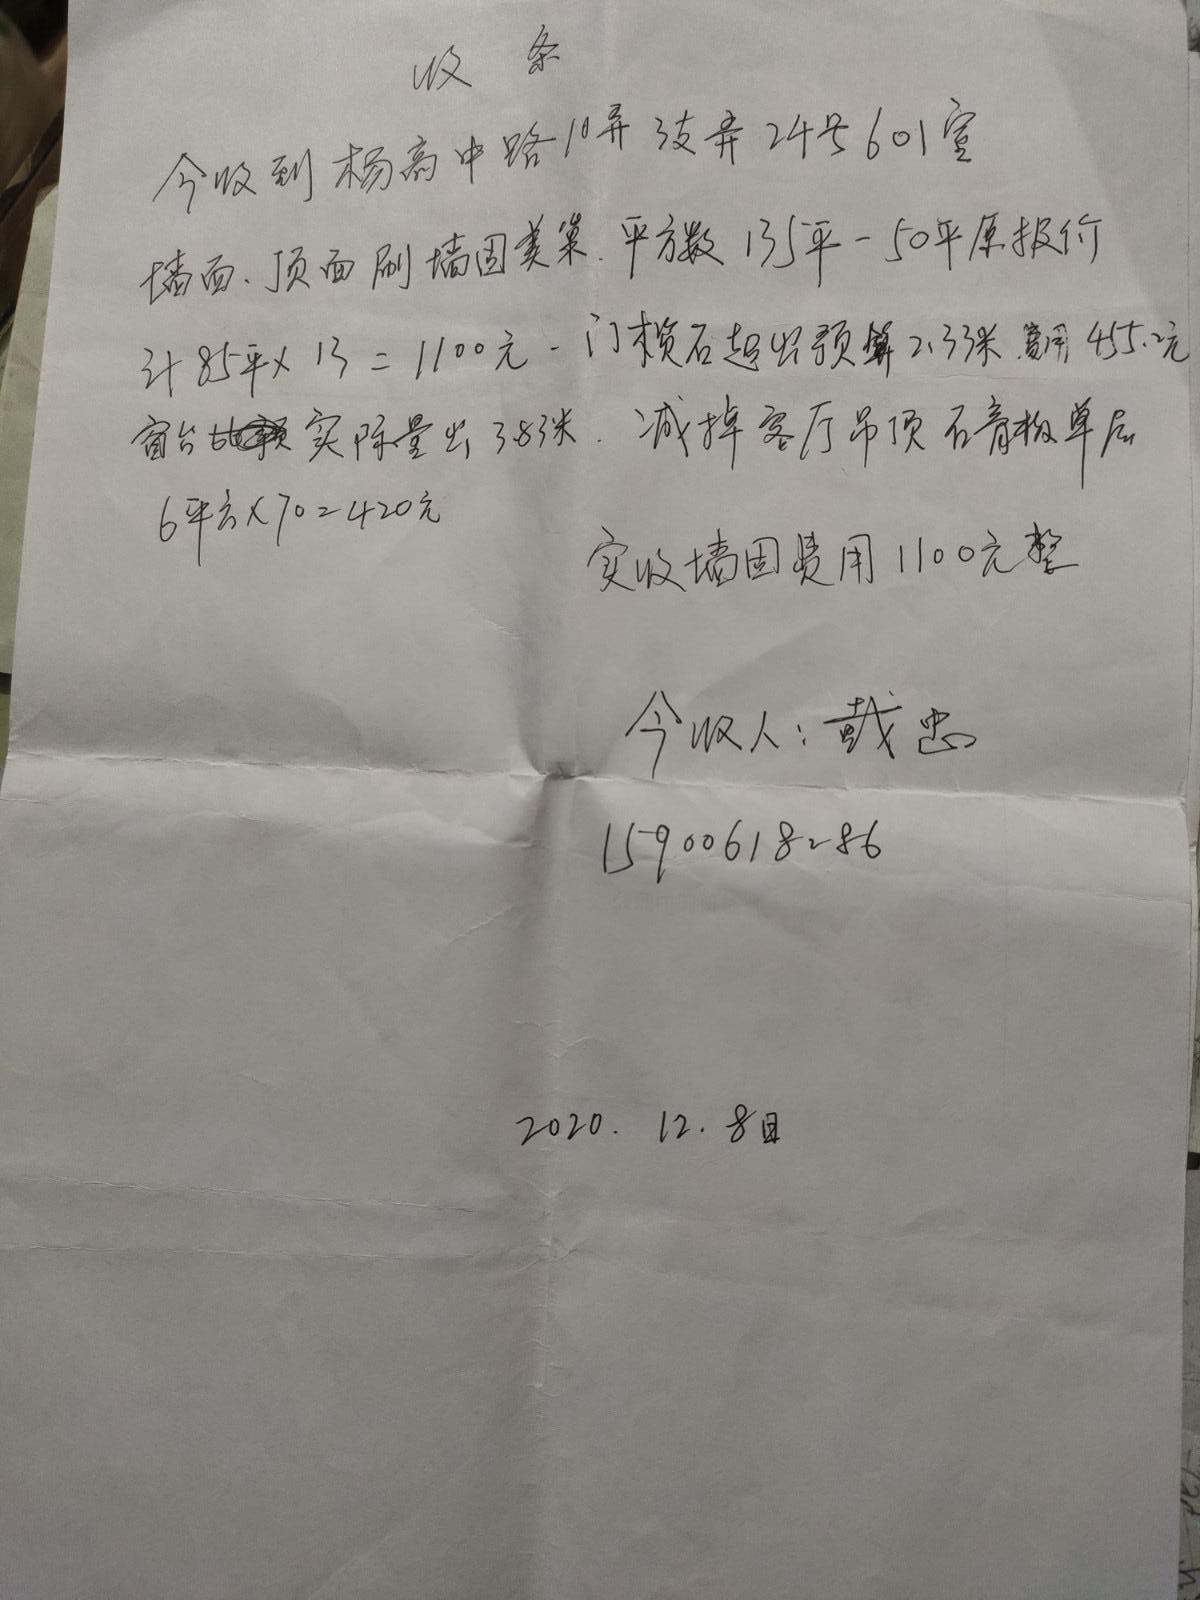 收条
今收到杨高中路10弄3支弄24号601室
墙面、顶面刷墙固美巢.平方数135平-50平原报价
计85平×13=1100元-门槛石超出预算2.33米费用455.2元
窗台 实际量出3.83米.减掉客厅吊顶石膏板单层
6平方×70=420元
实收墙固费用1100元整
今收人:戴忠
15900618286
2020.12.8日